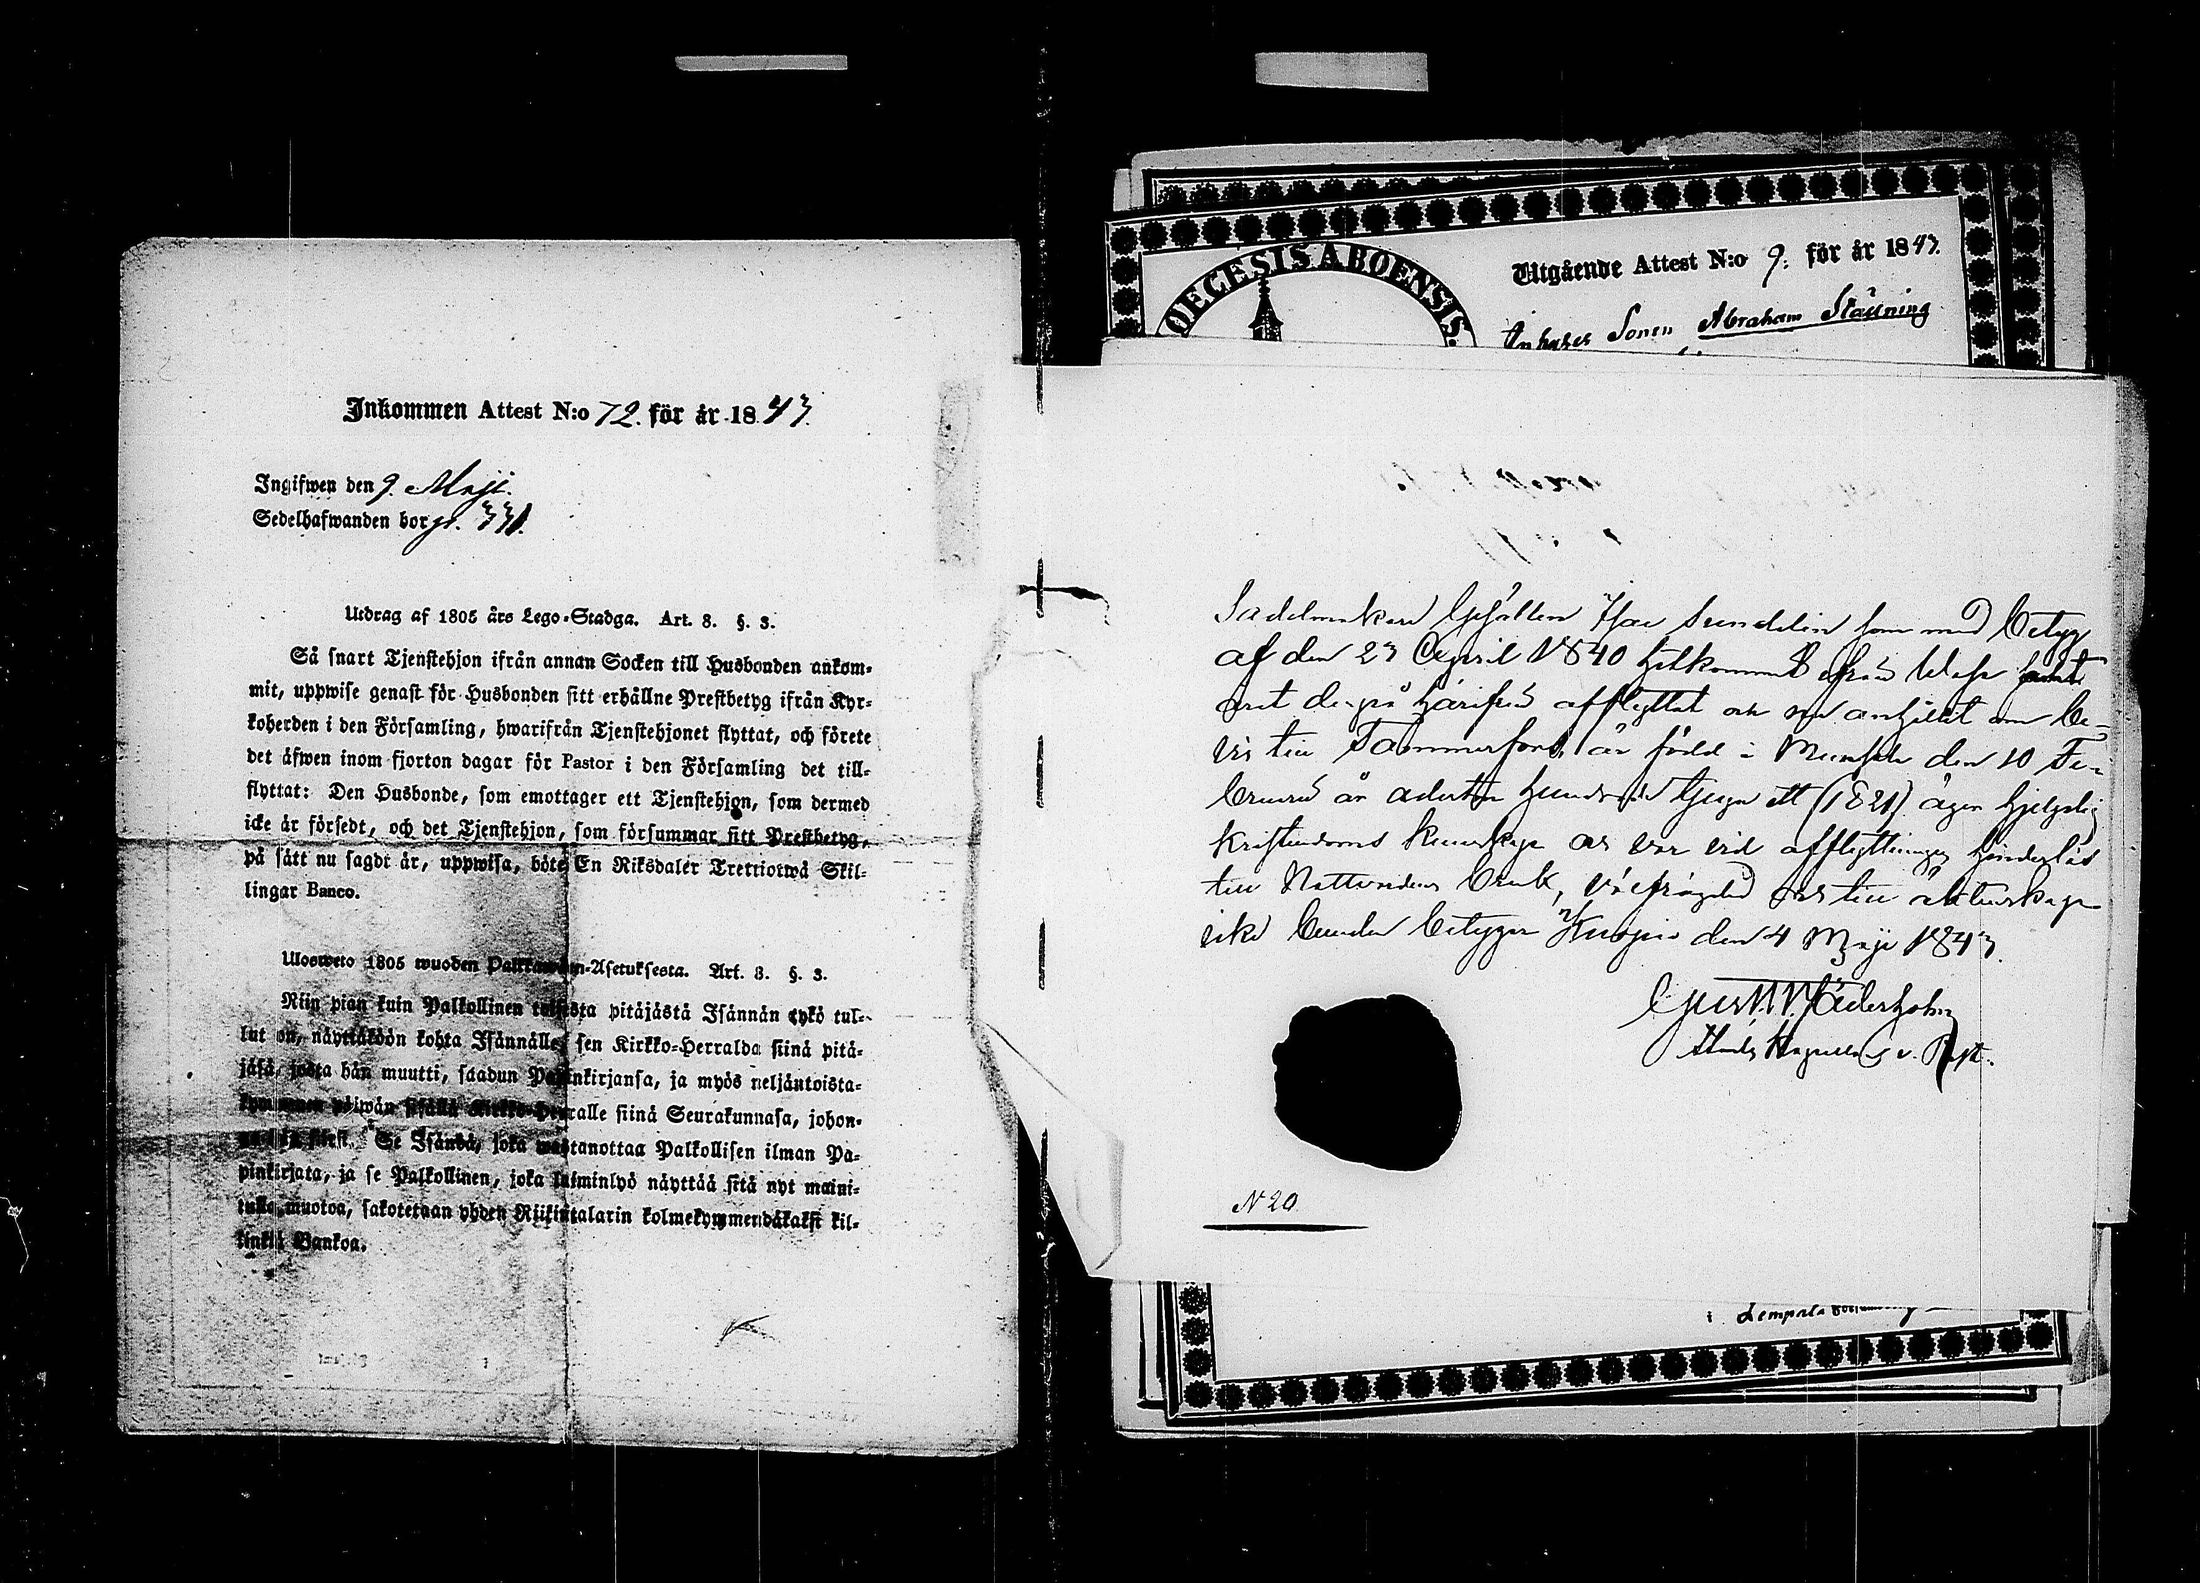 Inkommen Attest N:o 72. för år 1843.
Ingifwen den 9. Maji.
Sedelhafwanden bor gt. 331.
Utdrag af 1805 års Lego-Stadga. Art. 8. §. 3.
Så snart Tjenstehjon ifrån annan Socken till Husbonden ankom-
mit, uppwise genast för Husbonden sitt erhållne Prestbetyg ifrån Kyr-
koherden i den Församling, hwarifrån Tjenstehjonet flyttat, och förete
det äfwen inom fjorton dagar för Pastor i den Församling det till-
flyttat: Den Husbonde, som emottager ett Tjenstehjon, som dermed
icke är försedt, och det Tjenstehjon, som försummar sitt Prestbetyg,
på sätt nu sagdt är, uppwisa, böte En Riksdaler Trettiotwå Skil-
lingar Banco.
Ulosweto 1805 wuoden Palkkawäen-Asetuksesta. Art. 8. §. 3.
Niin pian kuin Palkollinen toisesta pitäjästä Isännän tykö tul-
lut on, näyttäköön kohta Isännälle sen Kirkko-Herralda siinä pitä-
jäsä, josta hän muutti, saadun Papinkirjansa, ja myös neljäntoista-
kymmenen päiwän sisällä Kirkko-Herralle siinä Seurakunnasa, johon-
Se Isändä, joka wastanottaa Palkollisen ilman Pa-
pinkirjata, ja se Palkollinen, joka laiminlyö näyttää sitä nyt maini-
tulla muotoa, sakotetaan yhden Riikintalarin kolmekymmendäkaksi kil-
linkiä Bankoa.
DIOECESIS ABOENSIS.
Utgående Attest N:o 9. för år 1843.
Inhyses Sonen Abraham Ståhning
Sadelmakare Gesällen Isac Sundelin som med betyg
af den 23 April 1840 hitkommit ifrån Wasa samt
derpå härifrån afflyttat och nu anhållit om be-
vis till Tammerfors, är född i Mumsala den 10 Fe-
bruarii år adertonhundrade tjugu ett (1821) äger hjelplig
kristendoms kunskap och var vid afflyttningen hinderlös
till Nattvardens bruk, välfräjdad och till äktenskap
icke bunden betygar Kuopio den 4 Maji 1843.
N 20
i Lempäla Församling